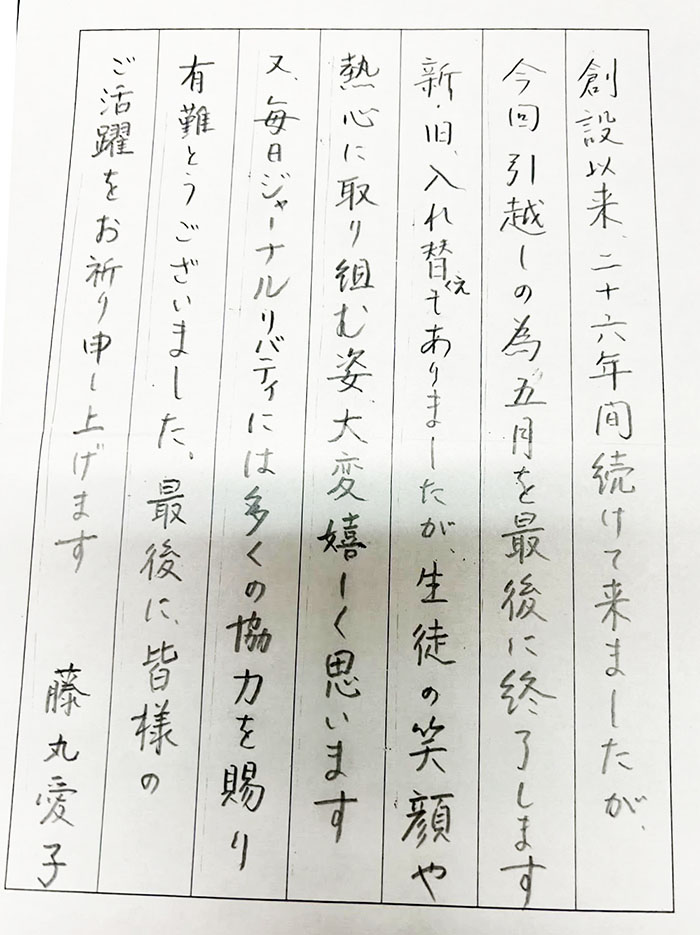 創設以来、二十六年間続けて来ましたが、
今回引越しの為、五月を最後に終了します
新・旧、入れ替えもありましたが、生徒の笑顔や
熱心に取り組む姿、大変嬉しく思います
又、毎日ジャーナルリバティには多くの協力を賜り
有難とうございました、最後に、皆様の
ご活躍をお祈り申し上げます
藤丸愛子